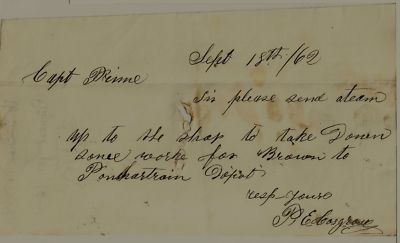 Sept 18th /62
Capt Prime
Sir please send a team
up to the shop to take Down
some worke for Brown to
Ponchartrain Depot
resp yours
P. E. Cosgrove